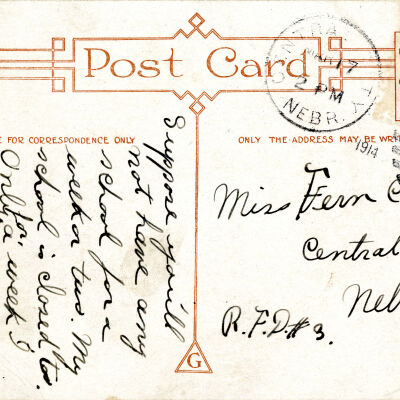 Post Card
CENTRAL CITY
MAR 17
2 PM
NEBR.
1914
E FOR CORRESPONDENCE ONLY
ONLY THE ADDRESS MAY BE WR
Suppose you'll
not have any
school for a
week or two. My
school is closed too
for
Only a week I
Miss Fern C
Central
Neb
R.F.D.#3.
G